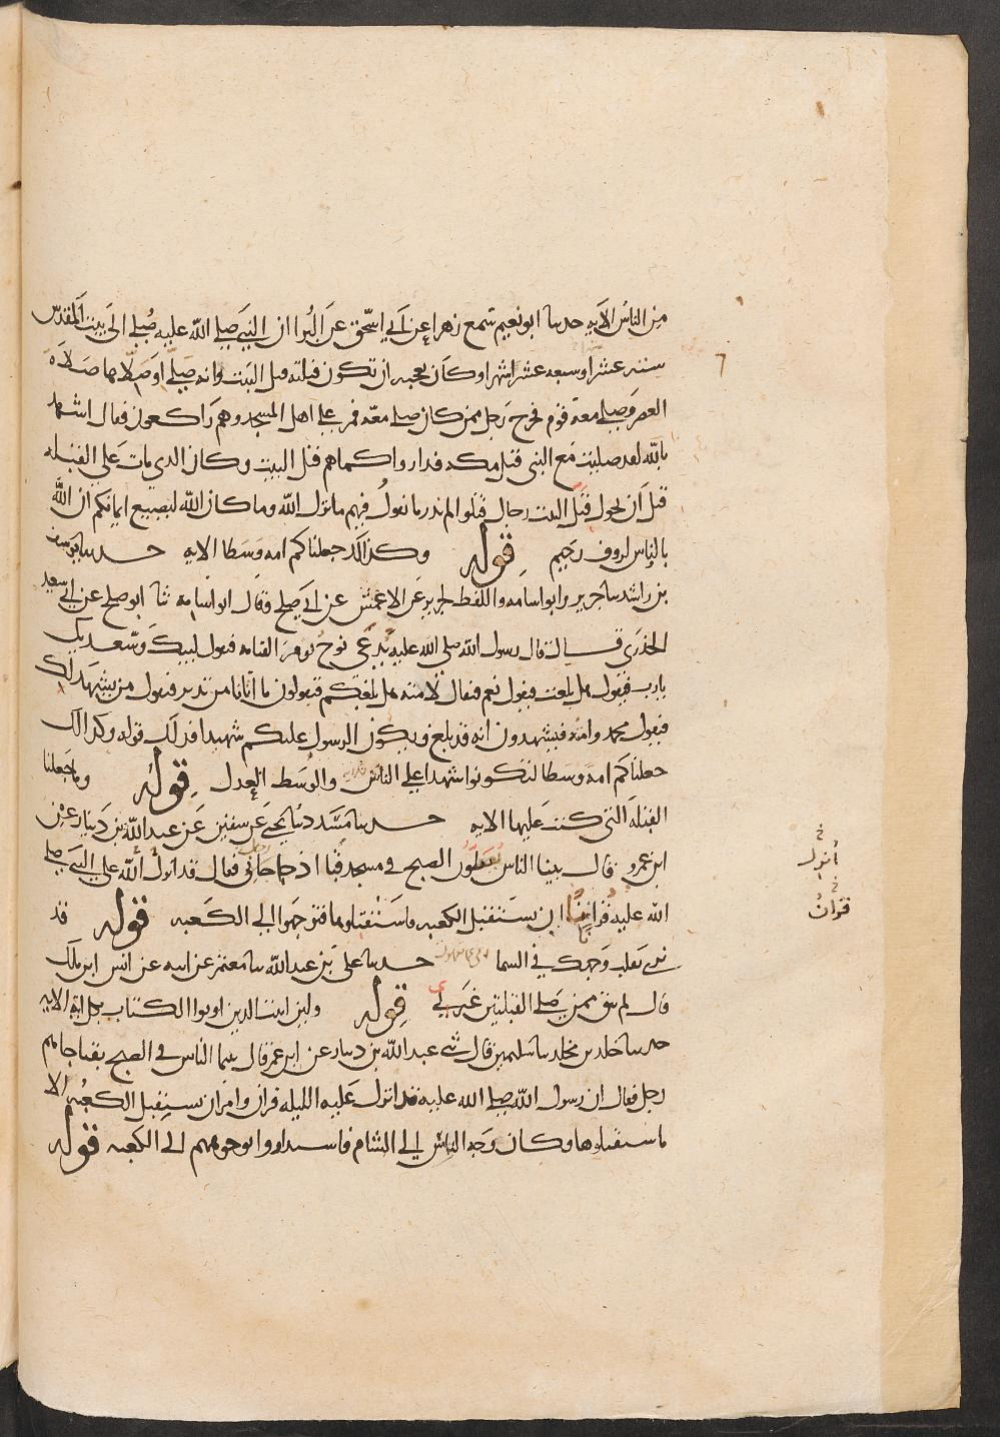 من الناس الايه حدثنا ابو نعيم سمع زهيرا عن ابي اسحق عن البرا ان النبي صلى الله عليه صُلي الى بيت المقدس
ستة عشر او سبعه عشر شهرا وكان يعجبه ان تكون قبلته قبل البيت وانه صلى او صلاها صلاة
العصر وصلى معه قوم فخرج رجل ممن كان صلى معه فمر على اهل المسجد وهم راكعون فقال اشهد
بالله لقد صليت مع النبي قبل مكه فداروا كماهم قبل البيت وكان الذي مات على القبله
قبل ان تحول قبل البيت رجال قتلوا لم ندر ما نقول فيهم فانزل الله وما كان الله ليضيع ايمانكم ان الله
بالناس لروف رحيم قوله وكذلك جعلناكم امه وسطا الايه حدثنا يوسف
بن راشد ثنا جرير وابو اسامه واللفظ لجرير عن الاعمش عن ابي صلح وقال ابو اسامه ثنا ابو صلح عن ابي سعيد
الخدري قال قال رسول الله صلى الله عليه يُدعى نوح يوم القيامه فيقول لبيك وسعديك
يارب فيقول هل بلغت فيقول نعم فيقال لامته هل بلغكم فيقولون ما اتانا من نذير فيقول من يشهد لك
فيقول محمد وامته فيشهدون انه قد بلغ ويكون الرسول عليكم شهيدا فذلك قوله وكذالك
جعلناكم امه وسطا لتكونوا شهدا على الناس والوسط العدل قوله وما جعلنا
القبله التي كنت عليها الايه حدثنا مسدد ثنا يحيى عن سفين عن عبد الله بن دينار عن
ابن عمر قال بينا الناس يُصَلُّون الصبح في مسجد قبا اذ جا جائي فقال قد انزل الله على النبي صلى
الله عليه قرانا ان يستقبل الكعبه فاستقبلوها فتوجهوا الى الكعبه قوله قد
نرى تقلب وجهك في السما حدثنا على بن عبد الله ثنا معتمر عن ابيه عن انس ابن ملك
قال لم يبق ممن صلى القبلتين غيري قوله ولين اتيت الذين اوتوا الكتاب بكل ايه الايه
حدثنا خلد بن مخلد ثنا سليمن قال ثني عبد الله بن دينار عن ابن عمر قال بينما الناس في الصبح بقبا جاهم
رجل فقال ان رسول الله صلى الله عليه قد انزل عليه الليله قران وامر ان يستقبل الكعبه الا
فاستقبلوها وكان وجه الناس الى الشام فاستداروا بوجوههم الى الكعبه قوله
خ
أنزل
خ
قرانٌ